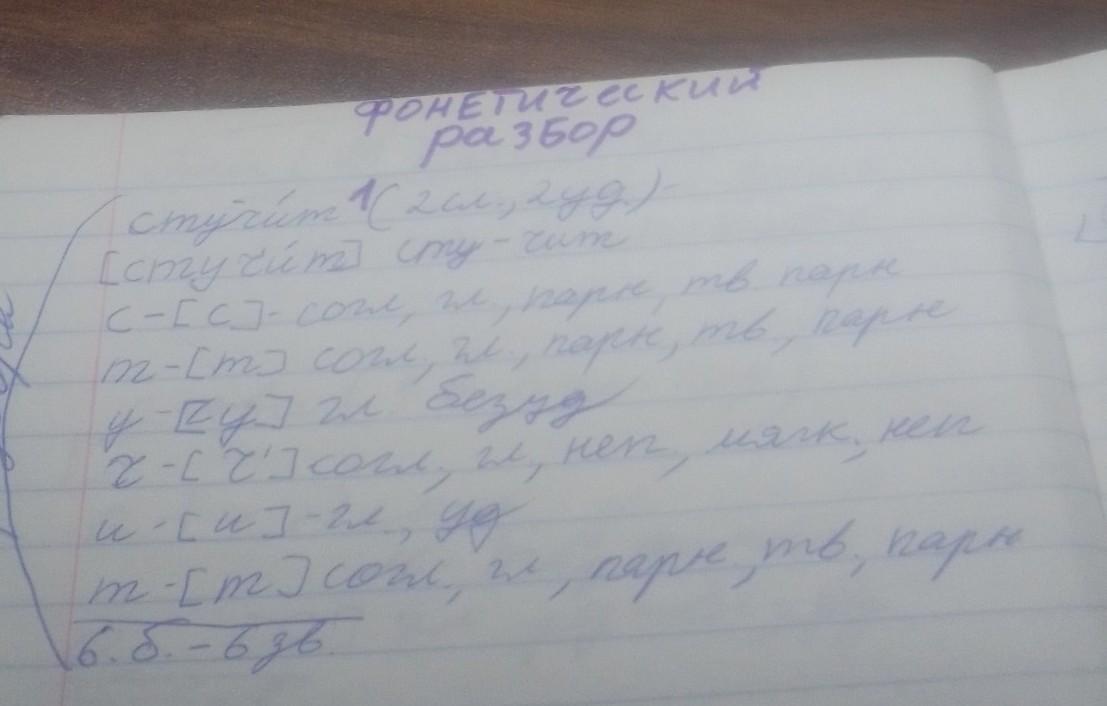 ФОНЕТИЧЕСКИЙ
разбор
стучи́т ¹ (2сл., 2уд.)
[стучи́т] сту - чит
с - [с] - согл, гл, парн, тв парн
т - [т] согл, гл., парн, тв., парн
у - [у] гл. безуд
ч - [ч'] согл., гл, неп, мягк., неп
и - [и] - гл., уд
т - [т] согл, гл, парн, тв, парн
6.б. - 6 зв.